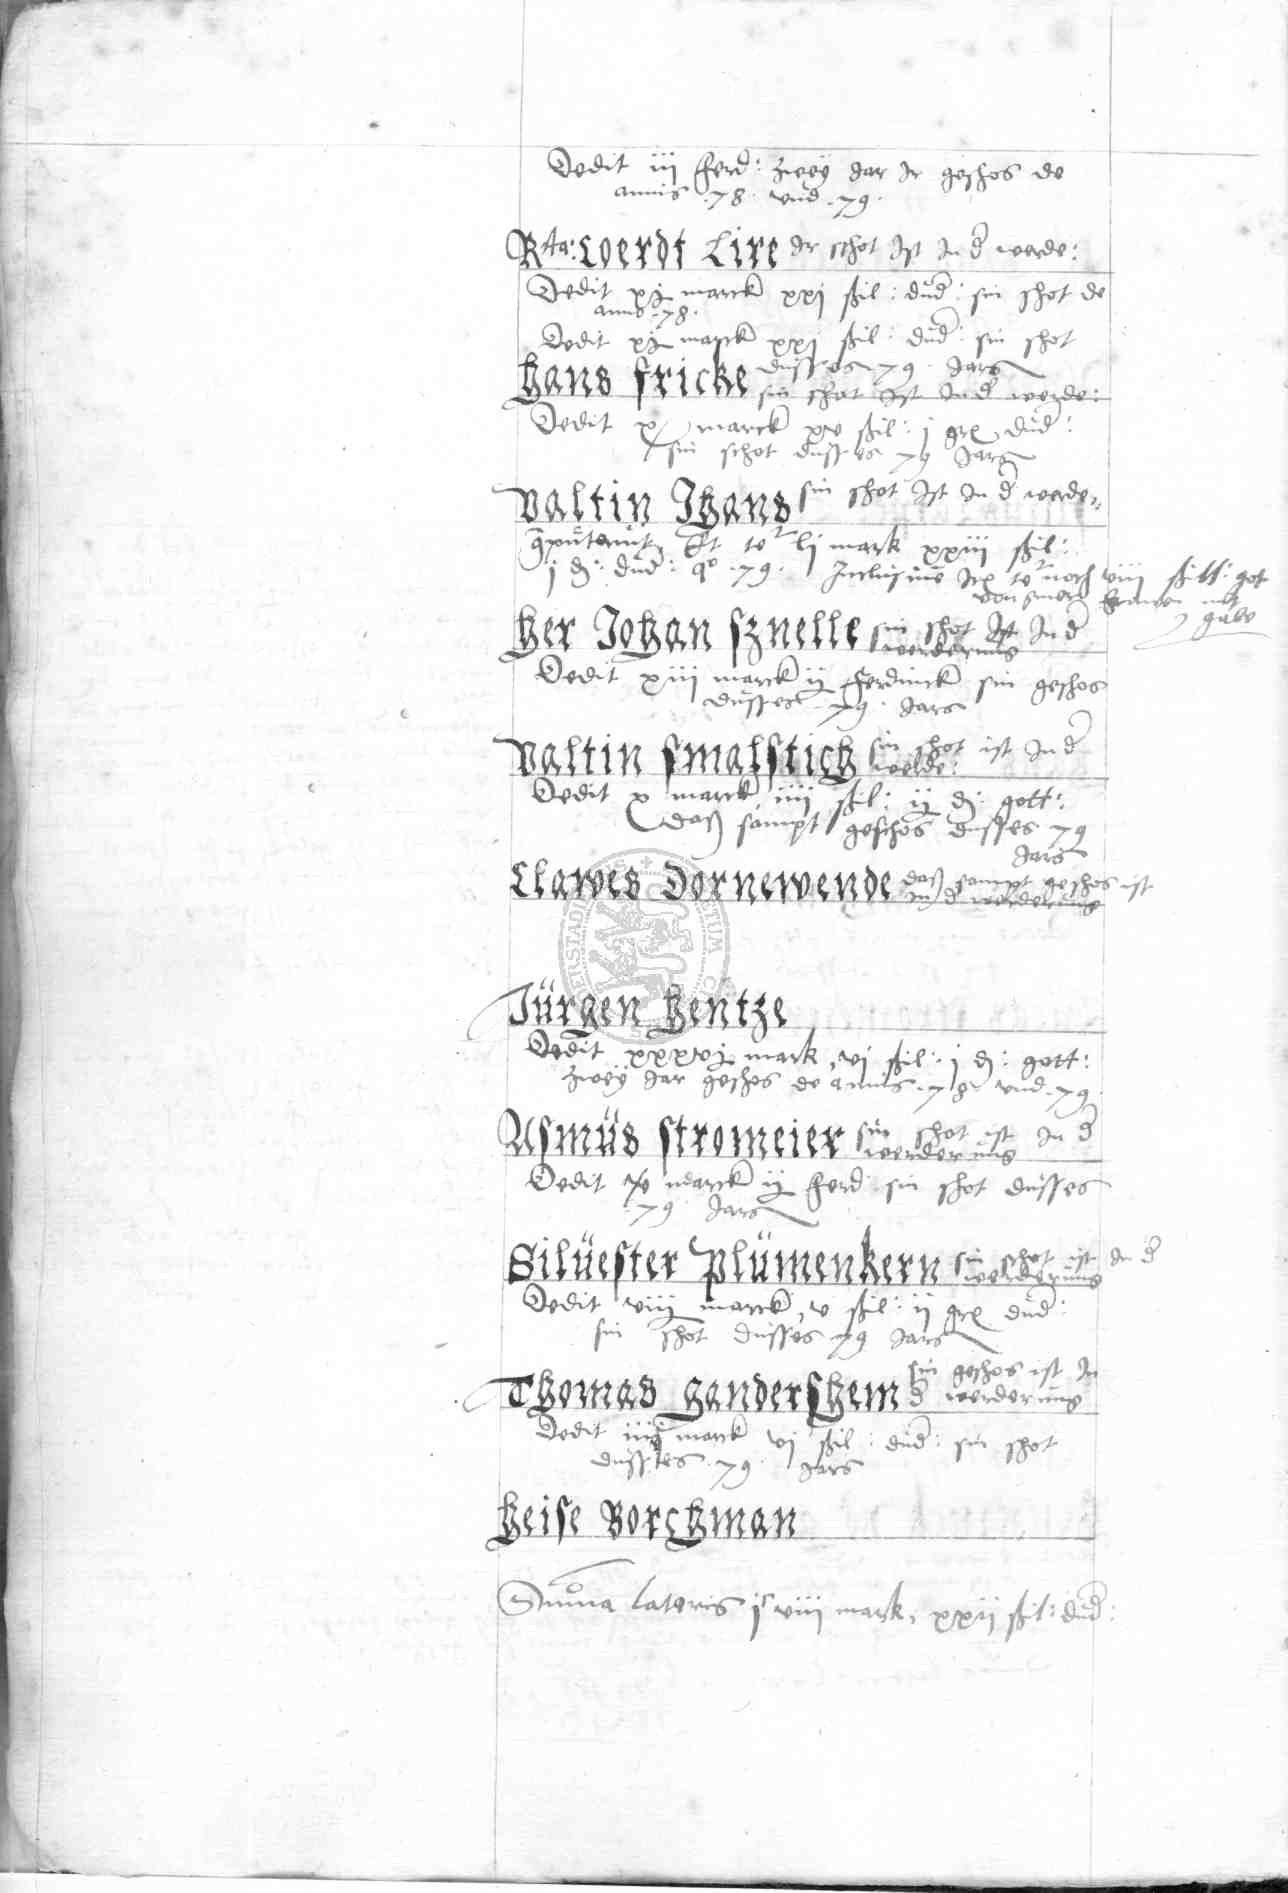 Dedit iij ferd: zwey Jar Jr geschos de
annis .78. vnd .79.
Rta: Coerdt Lire Jr schot Ist in d werde:
Dedit xj marck xxj ßil: dud: sin schot de
anno .78.
Dedit xj marck xxj ßil: dud: sin schot
dusses .79. Jars
Hans Fricke sin schot Ist in d werde:
Dedit x marck xv ßil: j gr dud:
sin schot dusses 79 Jars
Valtin Jhans sin schot Ist in d werde:
lj mark xxiii ßil:
j d: dud: .79. Inclusiue noch viii ßill: got
gabe
Her Johan Sznelle sin schot Ist in d
werderung
Dedit xiii marck ij ferdinck sin geschos
dusses .79. Jars
Valtin Smalstich sin schot ist in d
werde:
Dedit x marck iiii ßil: ij d: gott:
daß sampt geschos dusses 79
Jars
Clawes Dornewende daß sampt geschos ist
in d werderung
Jürgen Hentze
Dedit xxxvj mark, vj ßil: j d: gott:
zwey Jar geschos de annis .78. vnd .79.
Asmüs Stromeier sin schot ist in d
werderung
Dedit marck ij ferd sin schot dusses
.79. Jars
Silüester Plümenkern sin schot ist in d
werderung
Dedit viij marck, v ßil: ij gr dud:
sin schot dusses 79 Jars
Thomas Gandershem sin geschos ist in
d werderung
Dedit iiij marck vj ßil: dud: sin schot
dusses .79. Jars
Heise Borchman
Summa lateris jc viii mark, xxij ßil: dud: